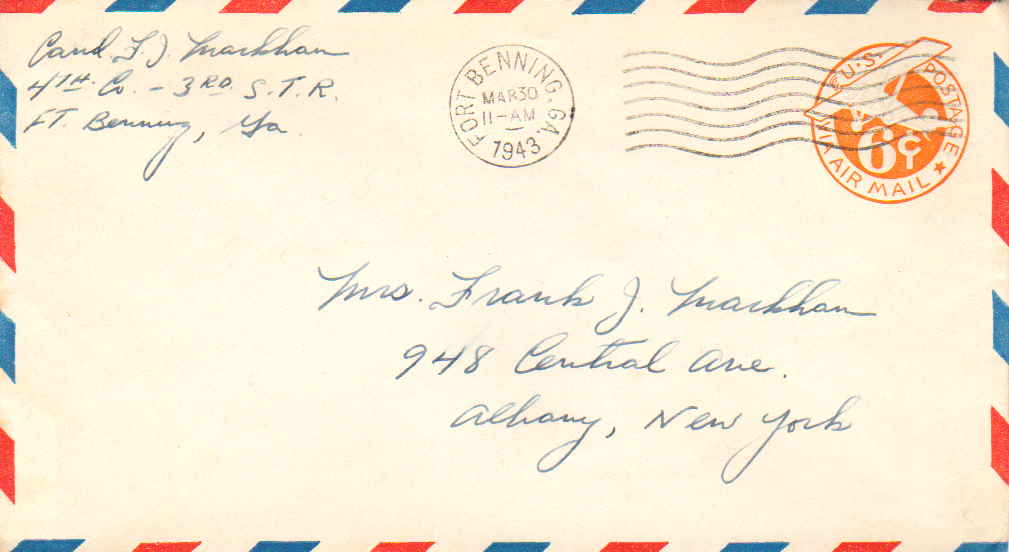 Cand. F. J. Markham
4TH Co. - 3RD S.T.R.
FT. Benning, Ga.
FORT BENNING, GA.
MAR 30
11-AM
1943
U.S. POSTAGE
6¢
VIA AIR MAIL
Mrs. Frank J. Markham
948 Central Ave.
Albany, New York